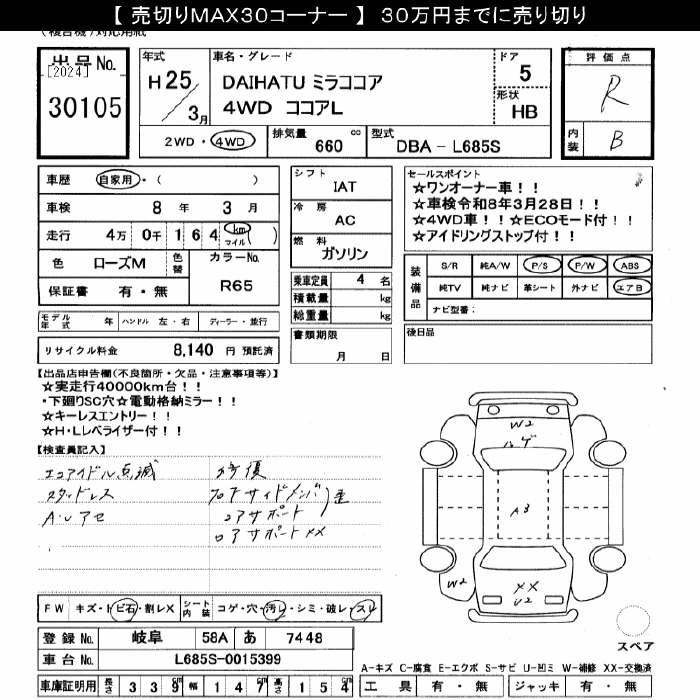 【 売切りMAX30コーナー 】 30万円までに売り切り
(複合機)対応用紙
出品No.
[2024]
30105
年式
H 25 / 3月
車名・グレード
DAIHATU ミラココア
4WD ココアL
ドア
5
形状
HB
評価点
R
内装
B
2WD・4WD
排気量 660 cc
型式 DBA - L685S
車歴 自家用・( )
車検 8 年 3 月
走行 4万 0千 1 6 4 km マイル ( )
色 ローズM 色替 カラーNo.
R65
保証書 有・無
シフト
IAT
冷房
AC
燃料
ガソリン
乗車定員 4 名
積載量 kg
総重量 kg
セールスポイント
☆ワンオーナー車!!
☆車検令和8年3月28日!!
☆4WD車!!☆ECOモード付!!
☆アイドリングストップ付!!
装備品
S/R 純A/W P/S P/W ABS
純TV 純ナビ 革シート 外ナビ エアB
ナビ型番:
モデル年式 年 ハンドル 左・右 ディーラー・並行
書類期限
月 日
後日品
リサイクル料金 8,140 円 預託済
【出品店申告欄(不良箇所・欠品・注意事項等)】
☆実走行40000km台!!
・下廻りSC穴☆電動格納ミラー!!
☆キーレスエントリー!!
☆H・Lレベライザー付!!
【検査員記入】
エコアイドル点滅
スタッドレス
A・Uアセ
修復
フロアサイドメンバ
コアサポート
ロアサポートXX
W2
ハゲ
A3
W2
XX
U2
FW キズ・トビ石・割レX
シート内装 コゲ・穴・汚レ・シミ・破レ・スレ
スペア
登録No. 岐阜 58A あ 7448
車台No. L685S-0015399
A-キズ C-腐食 E-エクボ S-サビ U-凹ミ W-補修 XX-交換済
車庫証明用 長さ 3 3 9 cm 幅 1 4 7 cm 高さ 1 5 4 cm
工具 有・無 ジャッキ 有・無